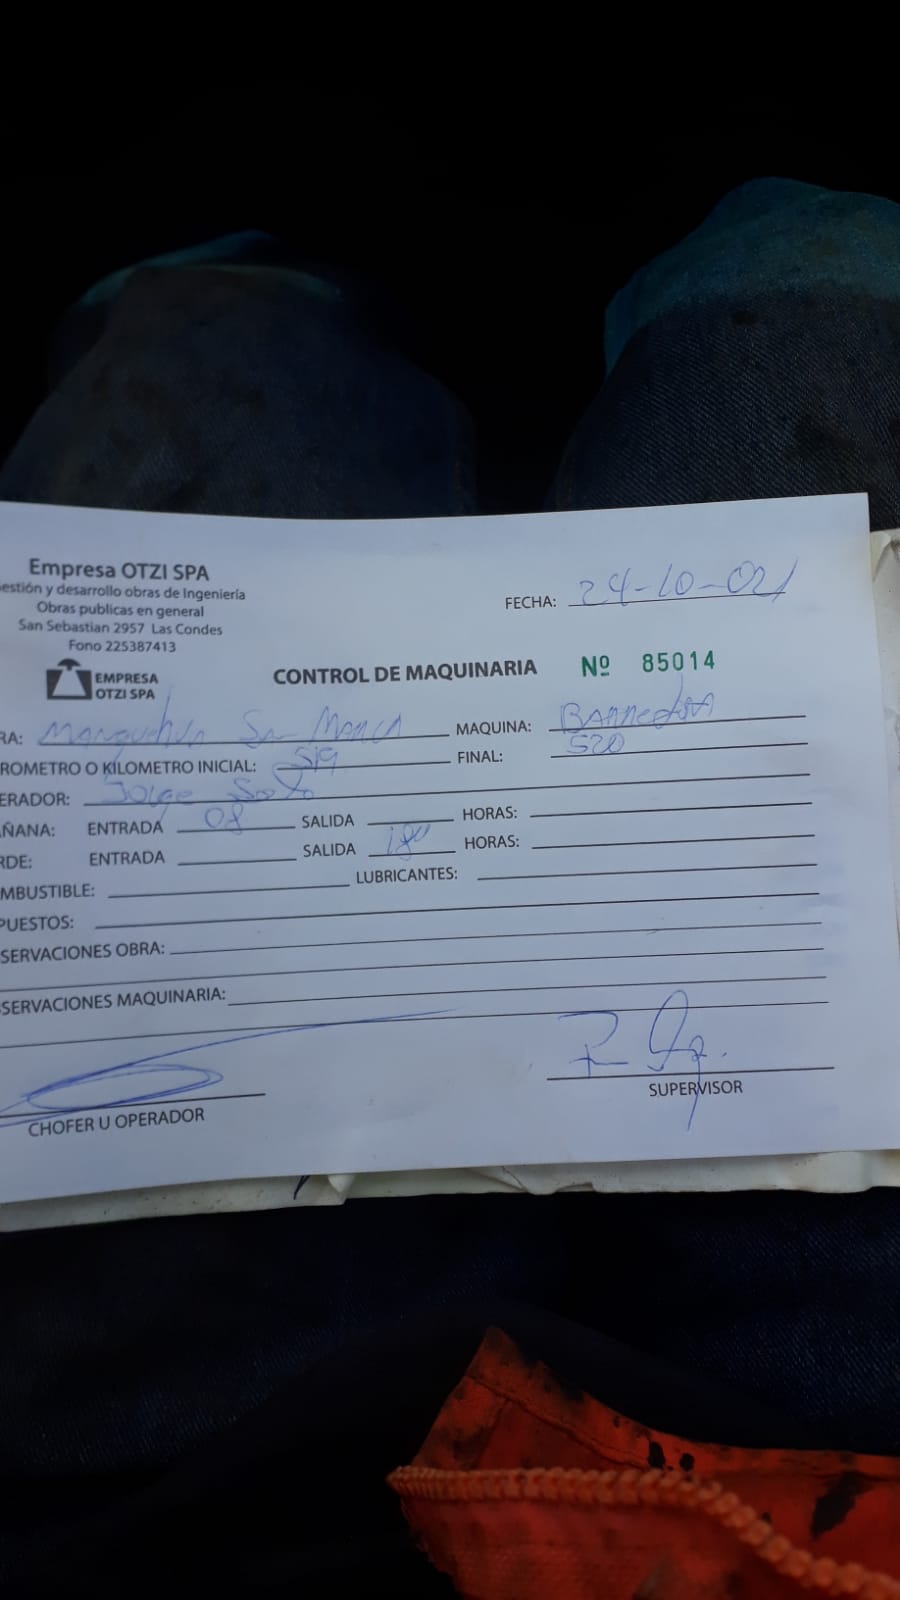 Empresa OTZI SPA
estión y desarrollo obras de Ingeniería
Obras publicas en general
San Sebastian 2957 Las Condes
Fono 225387413
EMPRESA
OTZI SPA
FECHA: 24-10-02
CONTROL DE MAQUINARIA Nº 85014
RA: MAQUINA:
ROMETRO O KILOMETRO INICIAL: 519 FINAL: 520
ERADOR: Jorge Soto
AÑANA: ENTRADA 08 SALIDA HORAS:
RDE: ENTRADA SALIDA 18 HORAS:
MBUSTIBLE: LUBRICANTES:
PUESTOS:
SERVACIONES OBRA:
SERVACIONES MAQUINARIA:
CHOFER U OPERADOR
SUPERVISOR